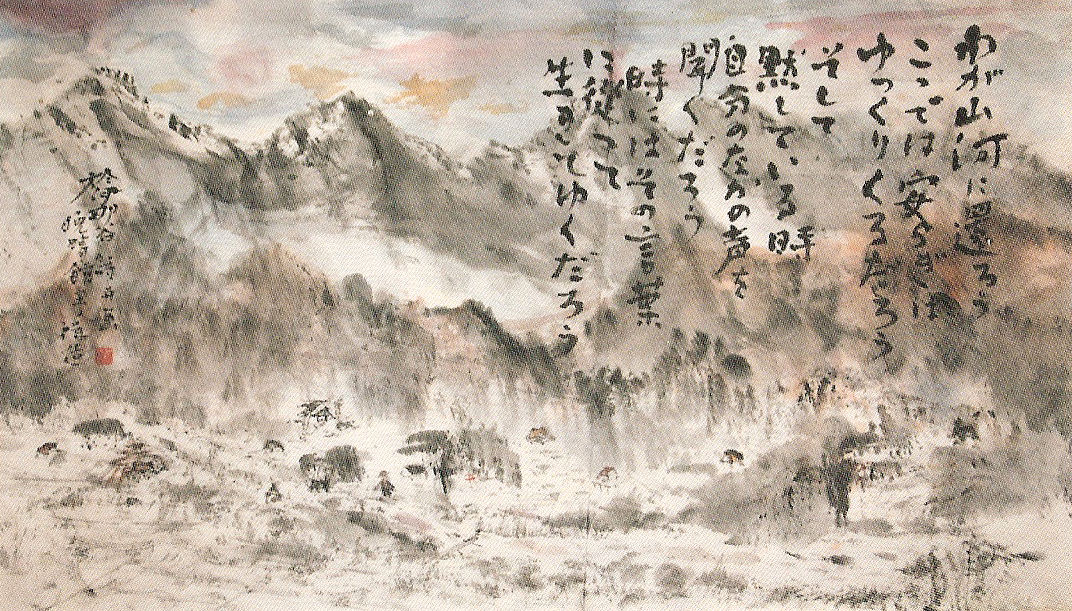 わが山河に還ろう
ここでは安らぎは
ゆっくりくるだろう
そして
黙している時
自分の在るの声を
聞くだろう
時にはその言葉
に従って
生きてゆくだろう